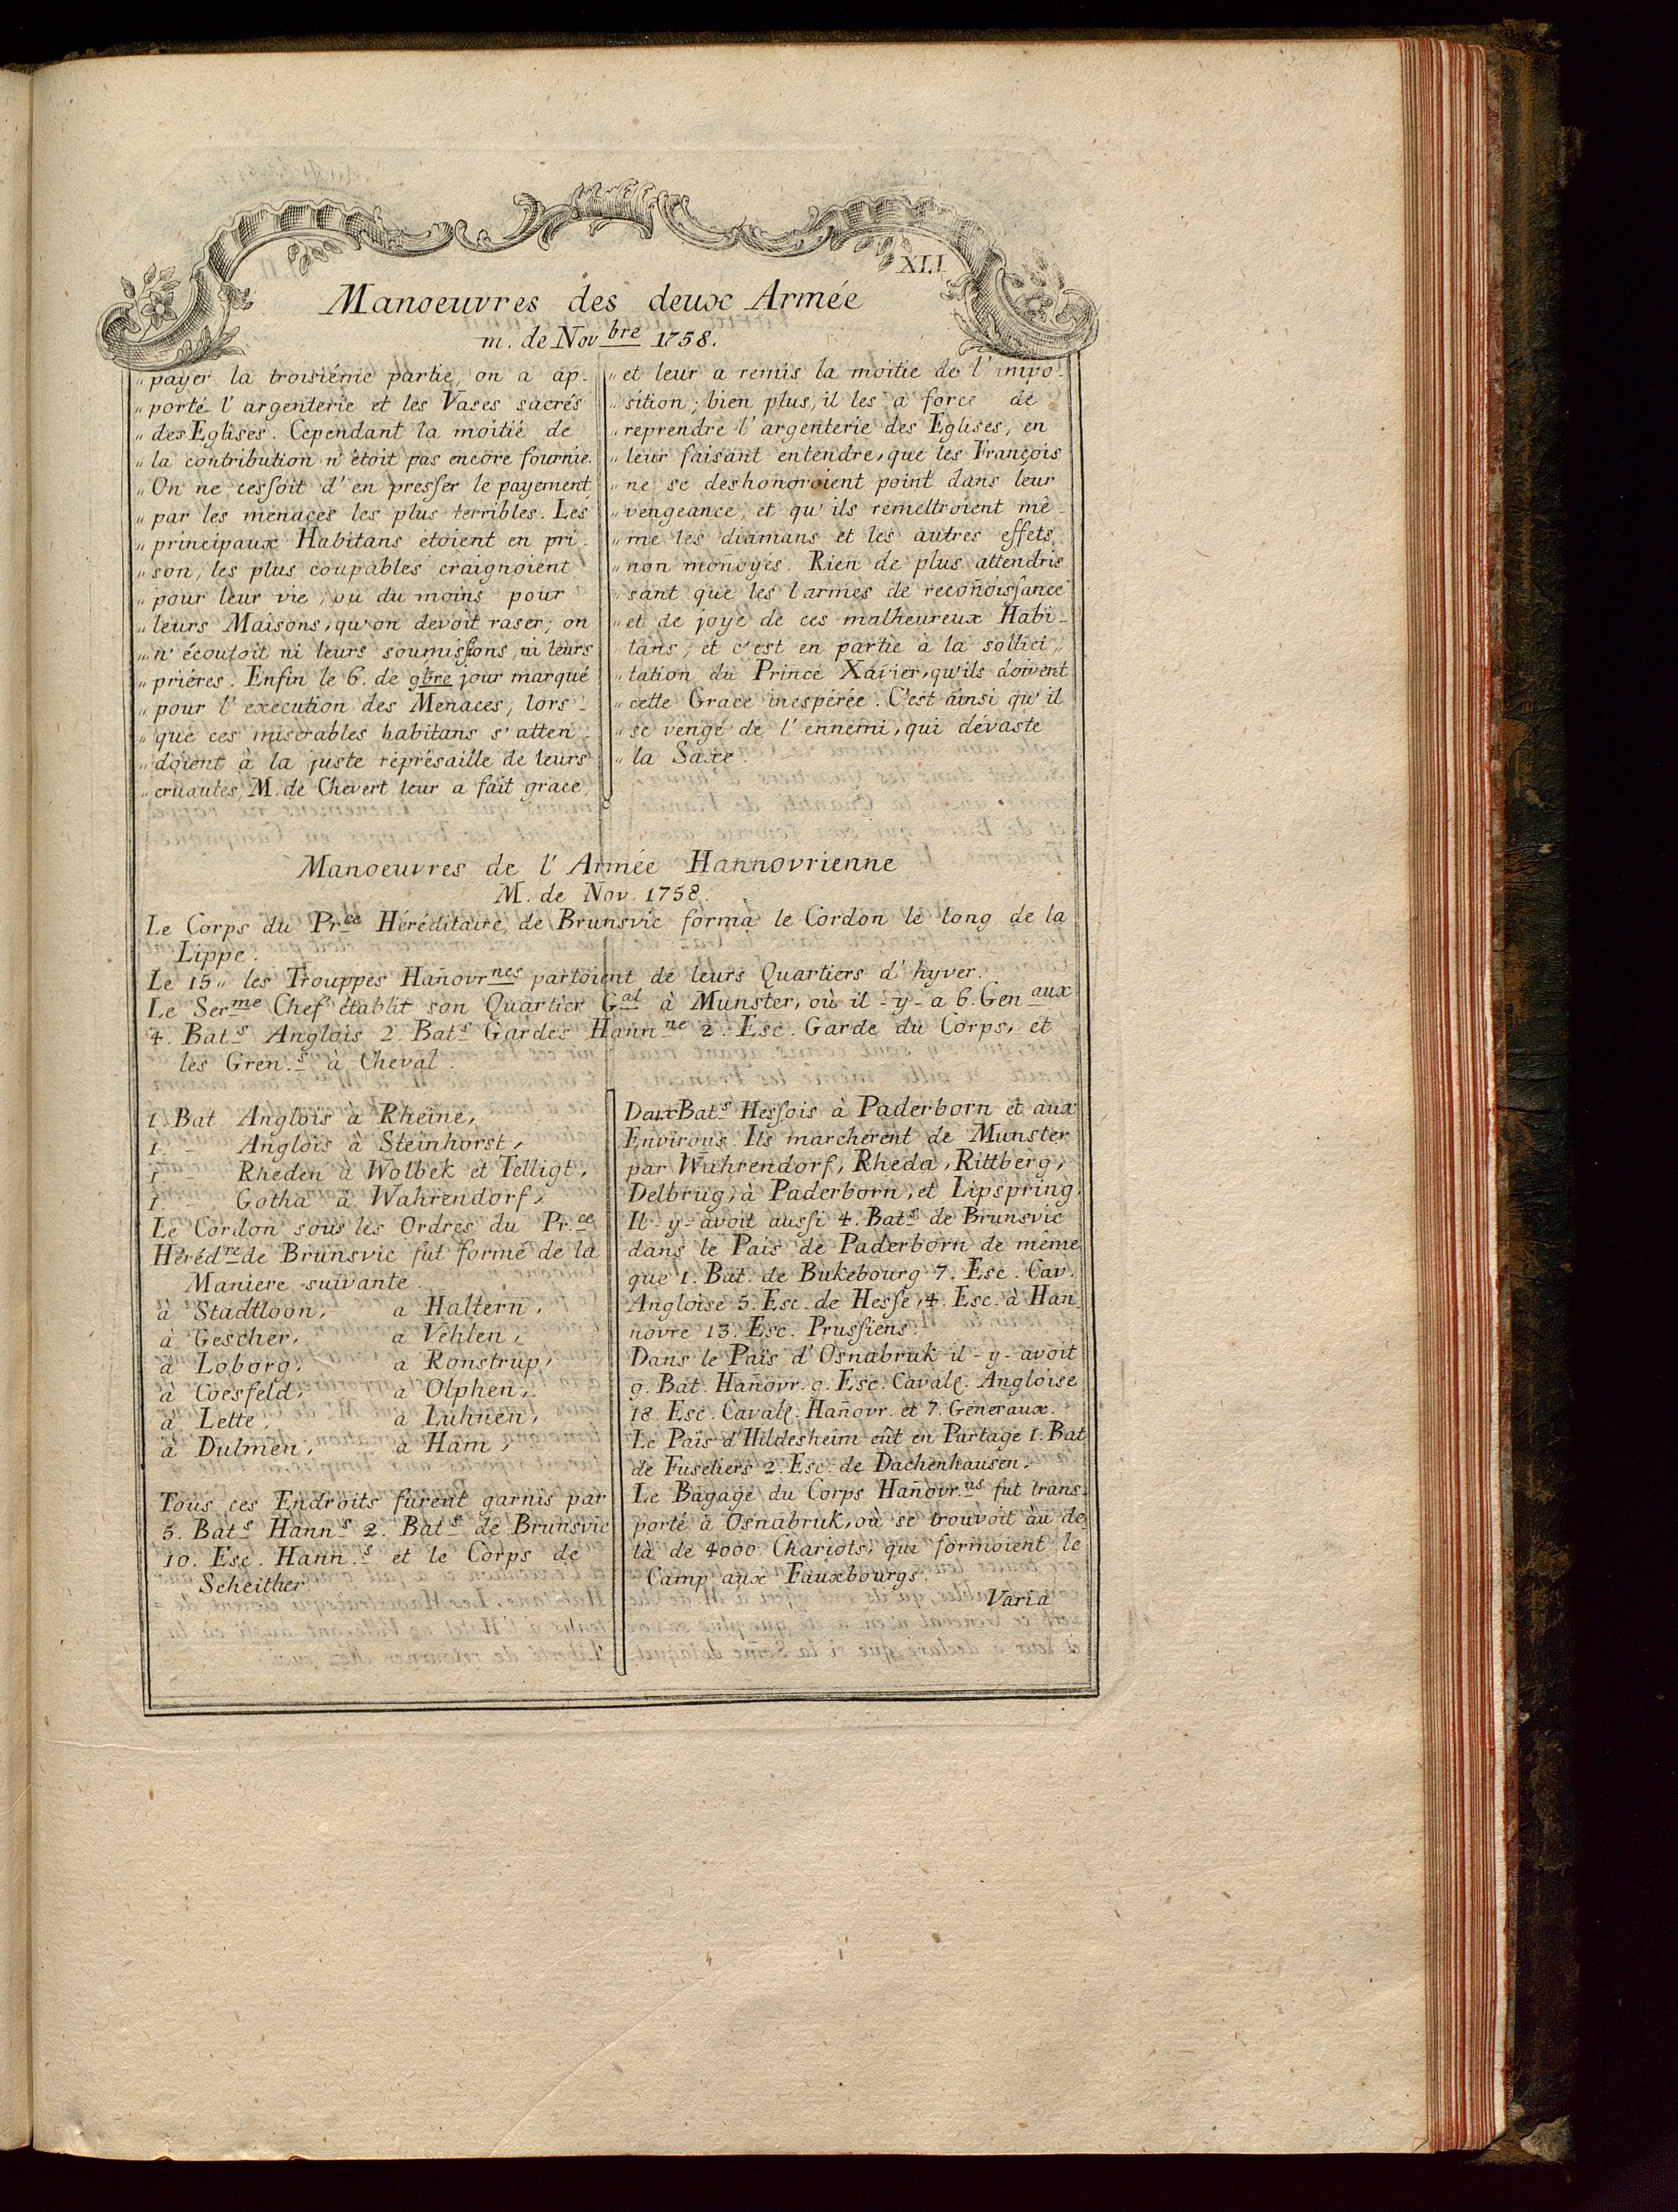 XLI
Manoeuvres des deux Armée
m. de Novbre 1758.
„ payer la troisiéme partie, on a ap-
„ porté l'argenterie et les Vases sacrés
„ des Eglises. Cependant la moitié de
„ la contribution n'étoit pas encore fournie.
„ On ne cesſoit d'en presſer le payement
„ par les menaces les plus terribles. Les
„ principaux Habitans étoient en pri-
„ son, les plus coupables craignoient
„ pour leur vie, ou du moins pour
„ leurs Maisons, qu'on devoit raser; on
„ n'écoutoit ni leurs soumisſions, ni leurs
„ priéres. Enfin le 6. de 9bre jour marqué
„ pour l'execution des Menaces, lors-
„ que ces miserables habitans s'atten-
„ doient à la juste réprésaille de leurs
„ cruautes, M. de Chevert leur a fait grace,
„ et leur a remis la moitie de l'impo-
„ sition; bien plus, il les a forcé de
„ reprendre l'argenterie des Eglises, en
„ leur faisant entendre, que les François
„ ne se deshonoroient point dans leur
„ vengeance, et qu'ils remettroient mê-
„ me les diamans et les autres effets
„ non moñoyés. Rien de plus attendris
„ sant que les larmes de recoñoisſance
„ et de joye de ces malheureux Habi-
„ tans, et c'est en partie à la sollici„
„ tation du Prince Xavier, qu'ils doivent
„ cette Grace inespérée. C'est ainsi qu'il
„ se venge de l'ennemi, qui dévaste
„ la Saxe.
Manoeuvres de l'Armée Hannovrienne
M. de Nov. 1758.
Le Corps du Pr.ce Héréditaire de Brunsvic forma le Cordon le long de la
Lippe.
Le 15„ les Trouppes Hañovrnes partoient de leurs Quartiers d'hyver.
Le Serme Chef établit son Quartier Gal à Munster, où il-y-a 6. Genaux
4. Bats Anglois 2. Bats Gardes Hannne 2. Esc. Garde du Corps, et
les Gren.s à Cheval.
1. Bat. Anglois à Rheine,
1. - Anglois à Steinhorst,
1 - Rheden à Wolbek et Telligt,
1. - Gotha à Wahrendorf,
Le Cordon sous les Ordres du Pr.ce
Hérédre de Brunsvic fut formé de la
Maniere suivante.
à Stadtloon, a Haltern,
à Gescher, a Vehlen,
à Loborg, a Ronstrup,
à Coesfeld, a Olphen,
à Lette, à Luhnen,
à Dulmen, à Ham,
Tous ces Endroits furent garnis par
5. Bats Hanns 2. Bats de Brunsvic
10. Esc. Hann.s et le Corps de
Scheither.
Deux Bats Hesſois à Paderborn et aux
Environs. Ils marcherent de Munster
par Wahrendorf, Rheda, Rittberg,
Delbrug, à Paderborn, et Lipspring.
Il-y-avoit ausſi 4. Bats de Brunsvic
dans le Païs de Paderborn de même
que 1. Bat. de Bukebourg 7. Esc. Cav.
Angloise 5. Esc. de Hesſe, 4. Esc. à Han-
novre 13. Esc. Prusſiens.
Dans le Païs d'Osnabruk il-y-avoit
9. Bat. Hañovr. 9. Esc. Cavall. Angloise
18. Esc. Cavall. Hañovr. et 7. Géneraux.
Le Païs d'Hildesheim eût en Partage 1. Bat
de Fuseliers 2. Esc. de Dachenhausen.
Le Bagage du Corps Hañovr.ns fut trans-
porté à Osnabruk, où se trouvoit àu de-
là de 4000. Chariots, qui formoient le
Camp aux Fauxbourgs.
Varia